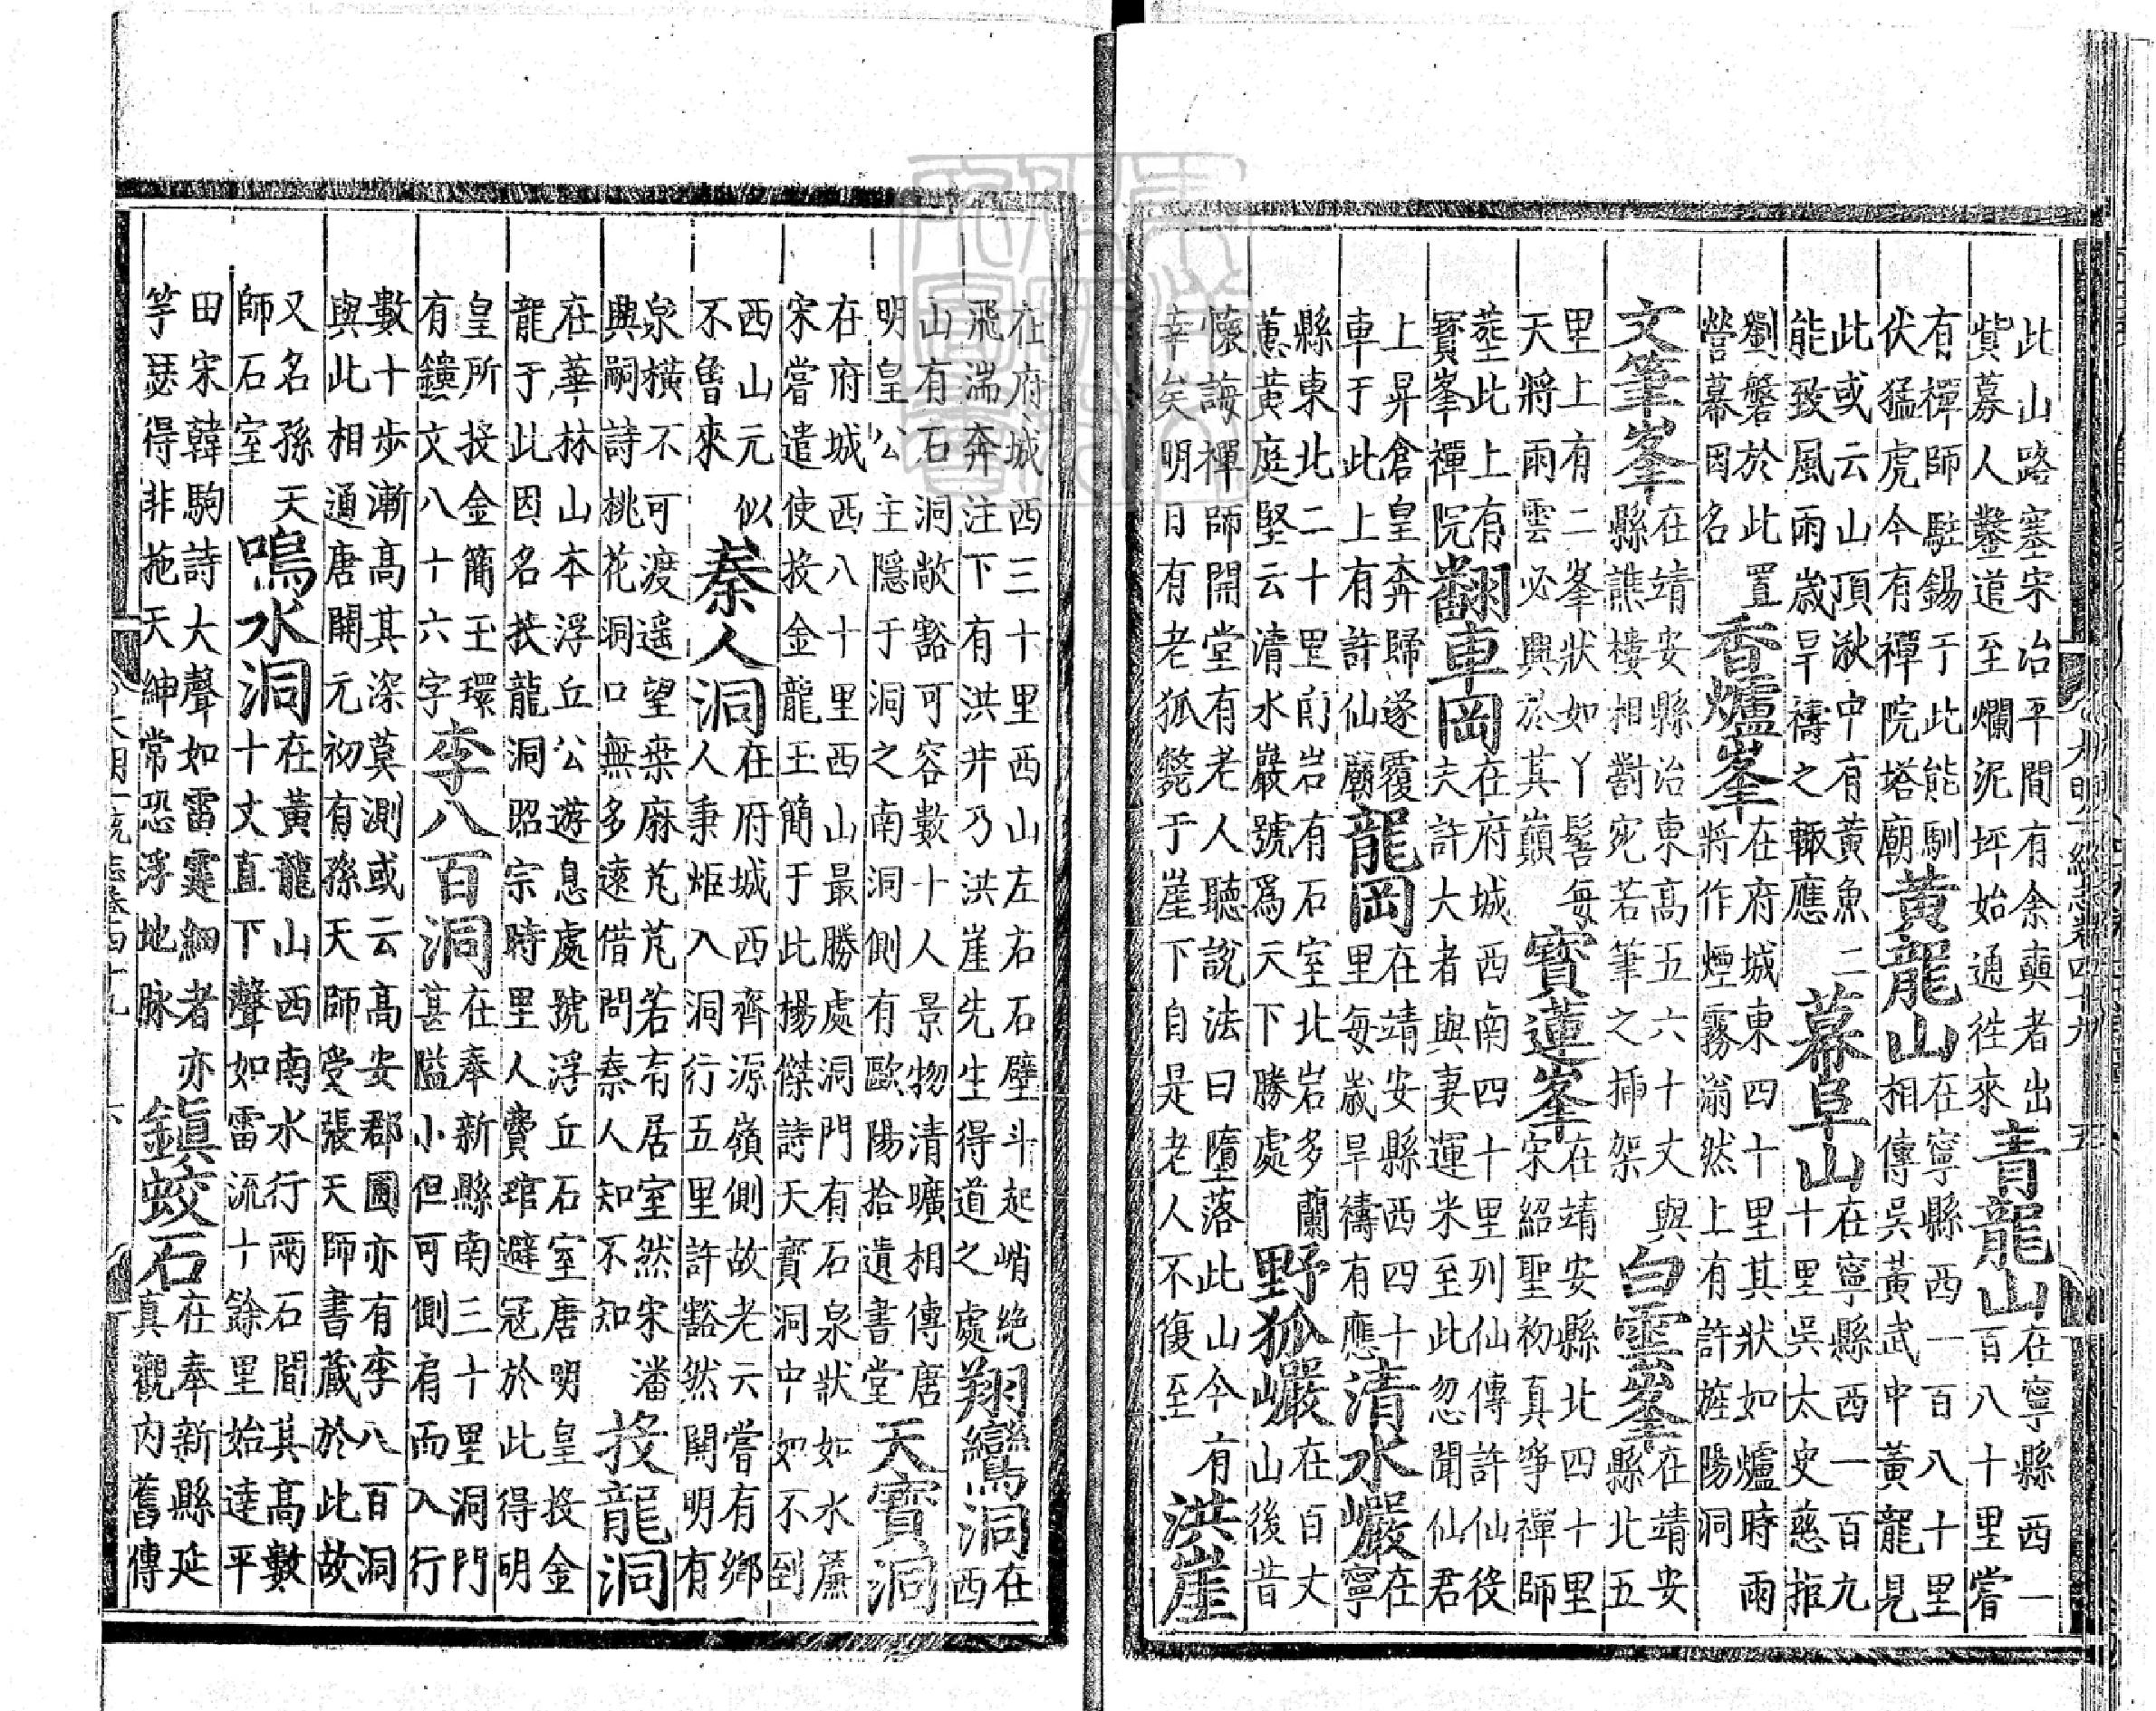 此山路塞宋治平間有余真者出
貲募人鑿道至爛泥坪始通徃來
青龍山
在寧縣西一
百八十里嘗
有禪師駐錫于此能馴
伏猛虎今有禪院塔廟
黃龍山
在寧縣西一百八十里
相傳吳黃武中黃龍見
此或云山頂湫中有黃魚二
能致風雨歲旱禱之輒應
幕阜山
在寧縣西一百九
十里吳太史慈拒
劉磐於此置
營幕因名
香爐峯
在府城東四十里其狀如爐時雨
將作煙霧滃然上有許旌陽洞
文筆峯
在靖安縣治東高五六十丈與
縣譙樓相對宛若筆之揷架
白雲峯
在靖安
縣北五
里上有二峯狀如丫髻每
天將雨雲必興於其巔
寶蓮峯
在靖安縣北四十里
宋紹聖初真爭禪師
塟此上有
寳峯禪院
翻車岡
在府城西南四十里列仙傳許仙役
夫許大者與妻運米至此忽聞仙君
上昇倉皇奔歸遂覆
車于此上有許仙廟
龍岡
在靖安縣西四十
里每歲旱禱有應
清水巖
在
寧
縣東北二十里前岩有石室北岩多蘭
蕙黃庭堅云清水巖號爲天下勝處
野狐巖
在百丈
山後昔
懷誨禪師開堂有老人聽說法曰墮落此山今有
幸矣明日有老狐斃于崖下自是老人不復至
洪崖
在府城西三十里西山左右石壁斗起峭絶
飛湍奔注下有洪井乃洪崖先生得道之處
翔鸞洞
在
西
山有石洞敞豁可容數十人景物清曠相傳唐
明皇公主隱于洞之南洞側有歐陽拾遺書堂
天寳洞
在府城西八十里西山最勝處洞門有石泉狀如水簾
宋嘗遣使投金龍玉簡于此楊傑詩天寳洞中如不到
西山元似
不曾來
秦人洞
在府城西齊源嶺側故老云嘗有鄉
人秉炬入洞行五里許豁然開明有
泉橫不可渡遥望桒麻芃芃若有居室然宋潘
興嗣詩桃花洞口無多遠借問秦人知不知
投龍洞
在華林山本浮丘公遊息處號浮丘石室唐明皇投金
龍于此因名投龍洞昭宗時里人費琯避冦於此得明
皇所投金簡玉環
有鐫文八十六字
李八百洞
在奉新縣南三十里洞門
甚隘小但可側肩而入行
數十步漸高其深莫測或云高安郡圃亦有李八百洞
與此相通唐開元初有孫天師受張天師書藏於此故
又名孫天
師石室
鳴水洞
在黃龍山西南水行兩石間其高數
十丈直下聲如雷流十餘里始達平
田宋韓駒詩大聲如雷霆細者亦
竽瑟得非拖天紳常恐浮地脉
鎮蛟石
在奉新縣延
真觀内舊傳
大明一統志卷四十九
五
大明一統志卷四十九
六